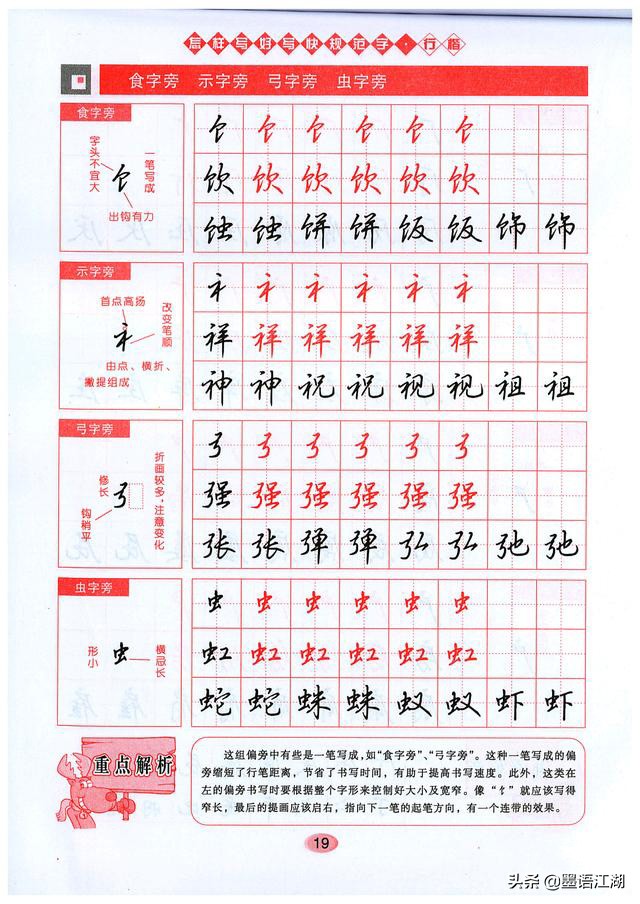 怎样写好写快规范字·行楷
食字旁 示字旁 弓字旁 虫字旁
食字旁
字头不宜大
一笔写成
饣
出钩有力
饣 饣 饣 饣 饣 饣
饮 饮 饮 饮 饮 饮
蚀 蚀 饼 饼 饭 饭 饰 饰
示字旁
首点高扬
改变笔顺
礻
由点、横折、
撇提组成
礻 礻 礻 礻 礻 礻
祥 祥 祥 祥 祥 祥
神 神 祝 祝 视 视 祖 祖
弓字旁
修长
钩稍平
弓
折画较多，注意变化
弓 弓 弓 弓 弓 弓
强 强 强 强 强 强
张 张 弹 弹 弘 弘 弛 弛
虫字旁
形小
虫
横忌长
虫 虫 虫 虫 虫 虫
虹 虹 虹 虹 虹 虹
蛇 蛇 蛛 蛛 蚁 蚁 虾 虾
重点解析
这组偏旁中有些是一笔写成，如“食字旁”、“弓字旁”。这种一笔写成的偏
旁缩短了行笔距离，节省了书写时间，有助于提高书写速度。此外，这类在
左的偏旁书写时要根据整个字形来控制好大小及宽窄。像“饣”就应该写得
窄长，最后的提画应该启右，指向下一笔的起笔方向，有一个连带的效果。
19
头条 @墨语江湖